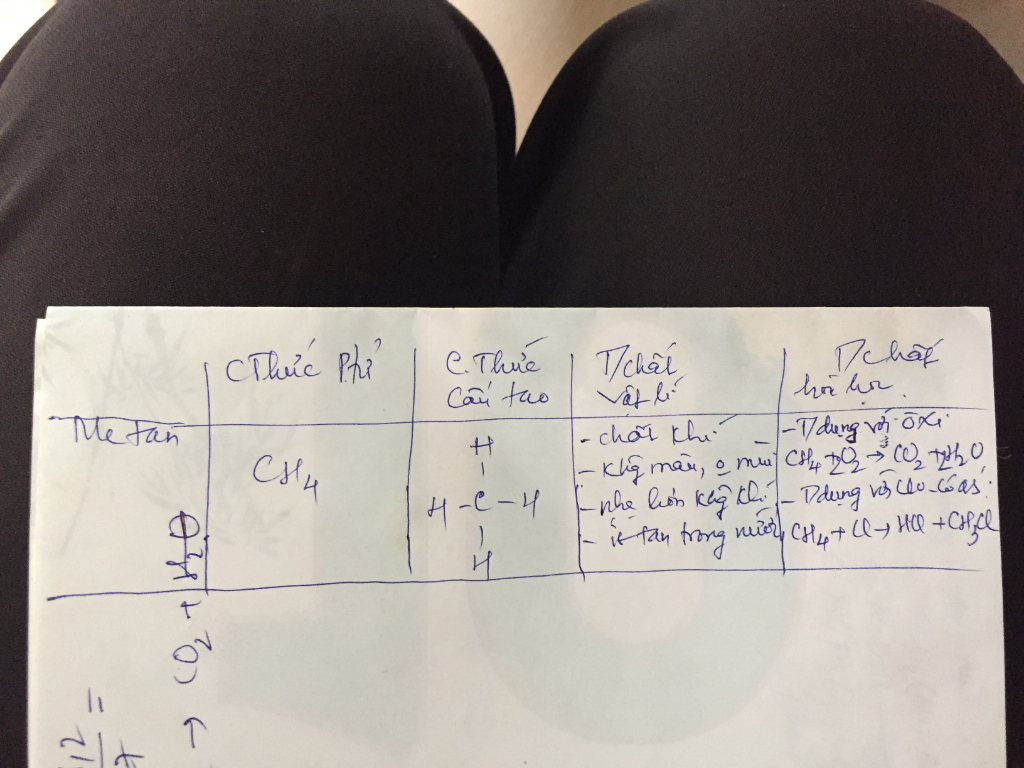 CThức Ptử
C.Thức
Cấu tạo
T/chất
Vật lí
T/chất
hóa học
Me tan
CH4
H
H-C-H
H
- chất khí
- Khg màu, o mùi
- nhẹ hơn khg khí
- ít tan trong nước
- T/dụng với ôxi
CH4 + 2O2 → CO2 + 2H2O
- T/dụng với Clo - có as:
CH4 + Cl → HCl + CH3Cl
→ CO2 + H2O
12 =